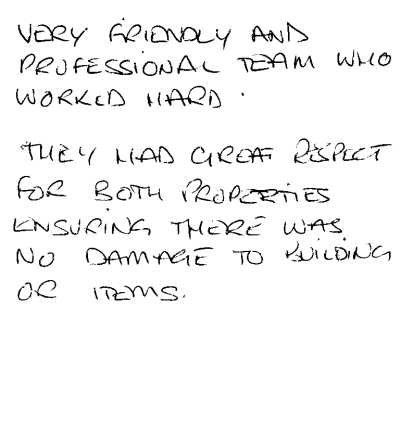 VERY FRIENDLY AND
PROFESSIONAL TEAM WHO
WORKED HARD.
THEY HAD GREAT RESPECT
FOR BOTH PROPERTIES
ENSURING THERE WAS
NO DAMAGE TO BUILDING
OR ITEMS.